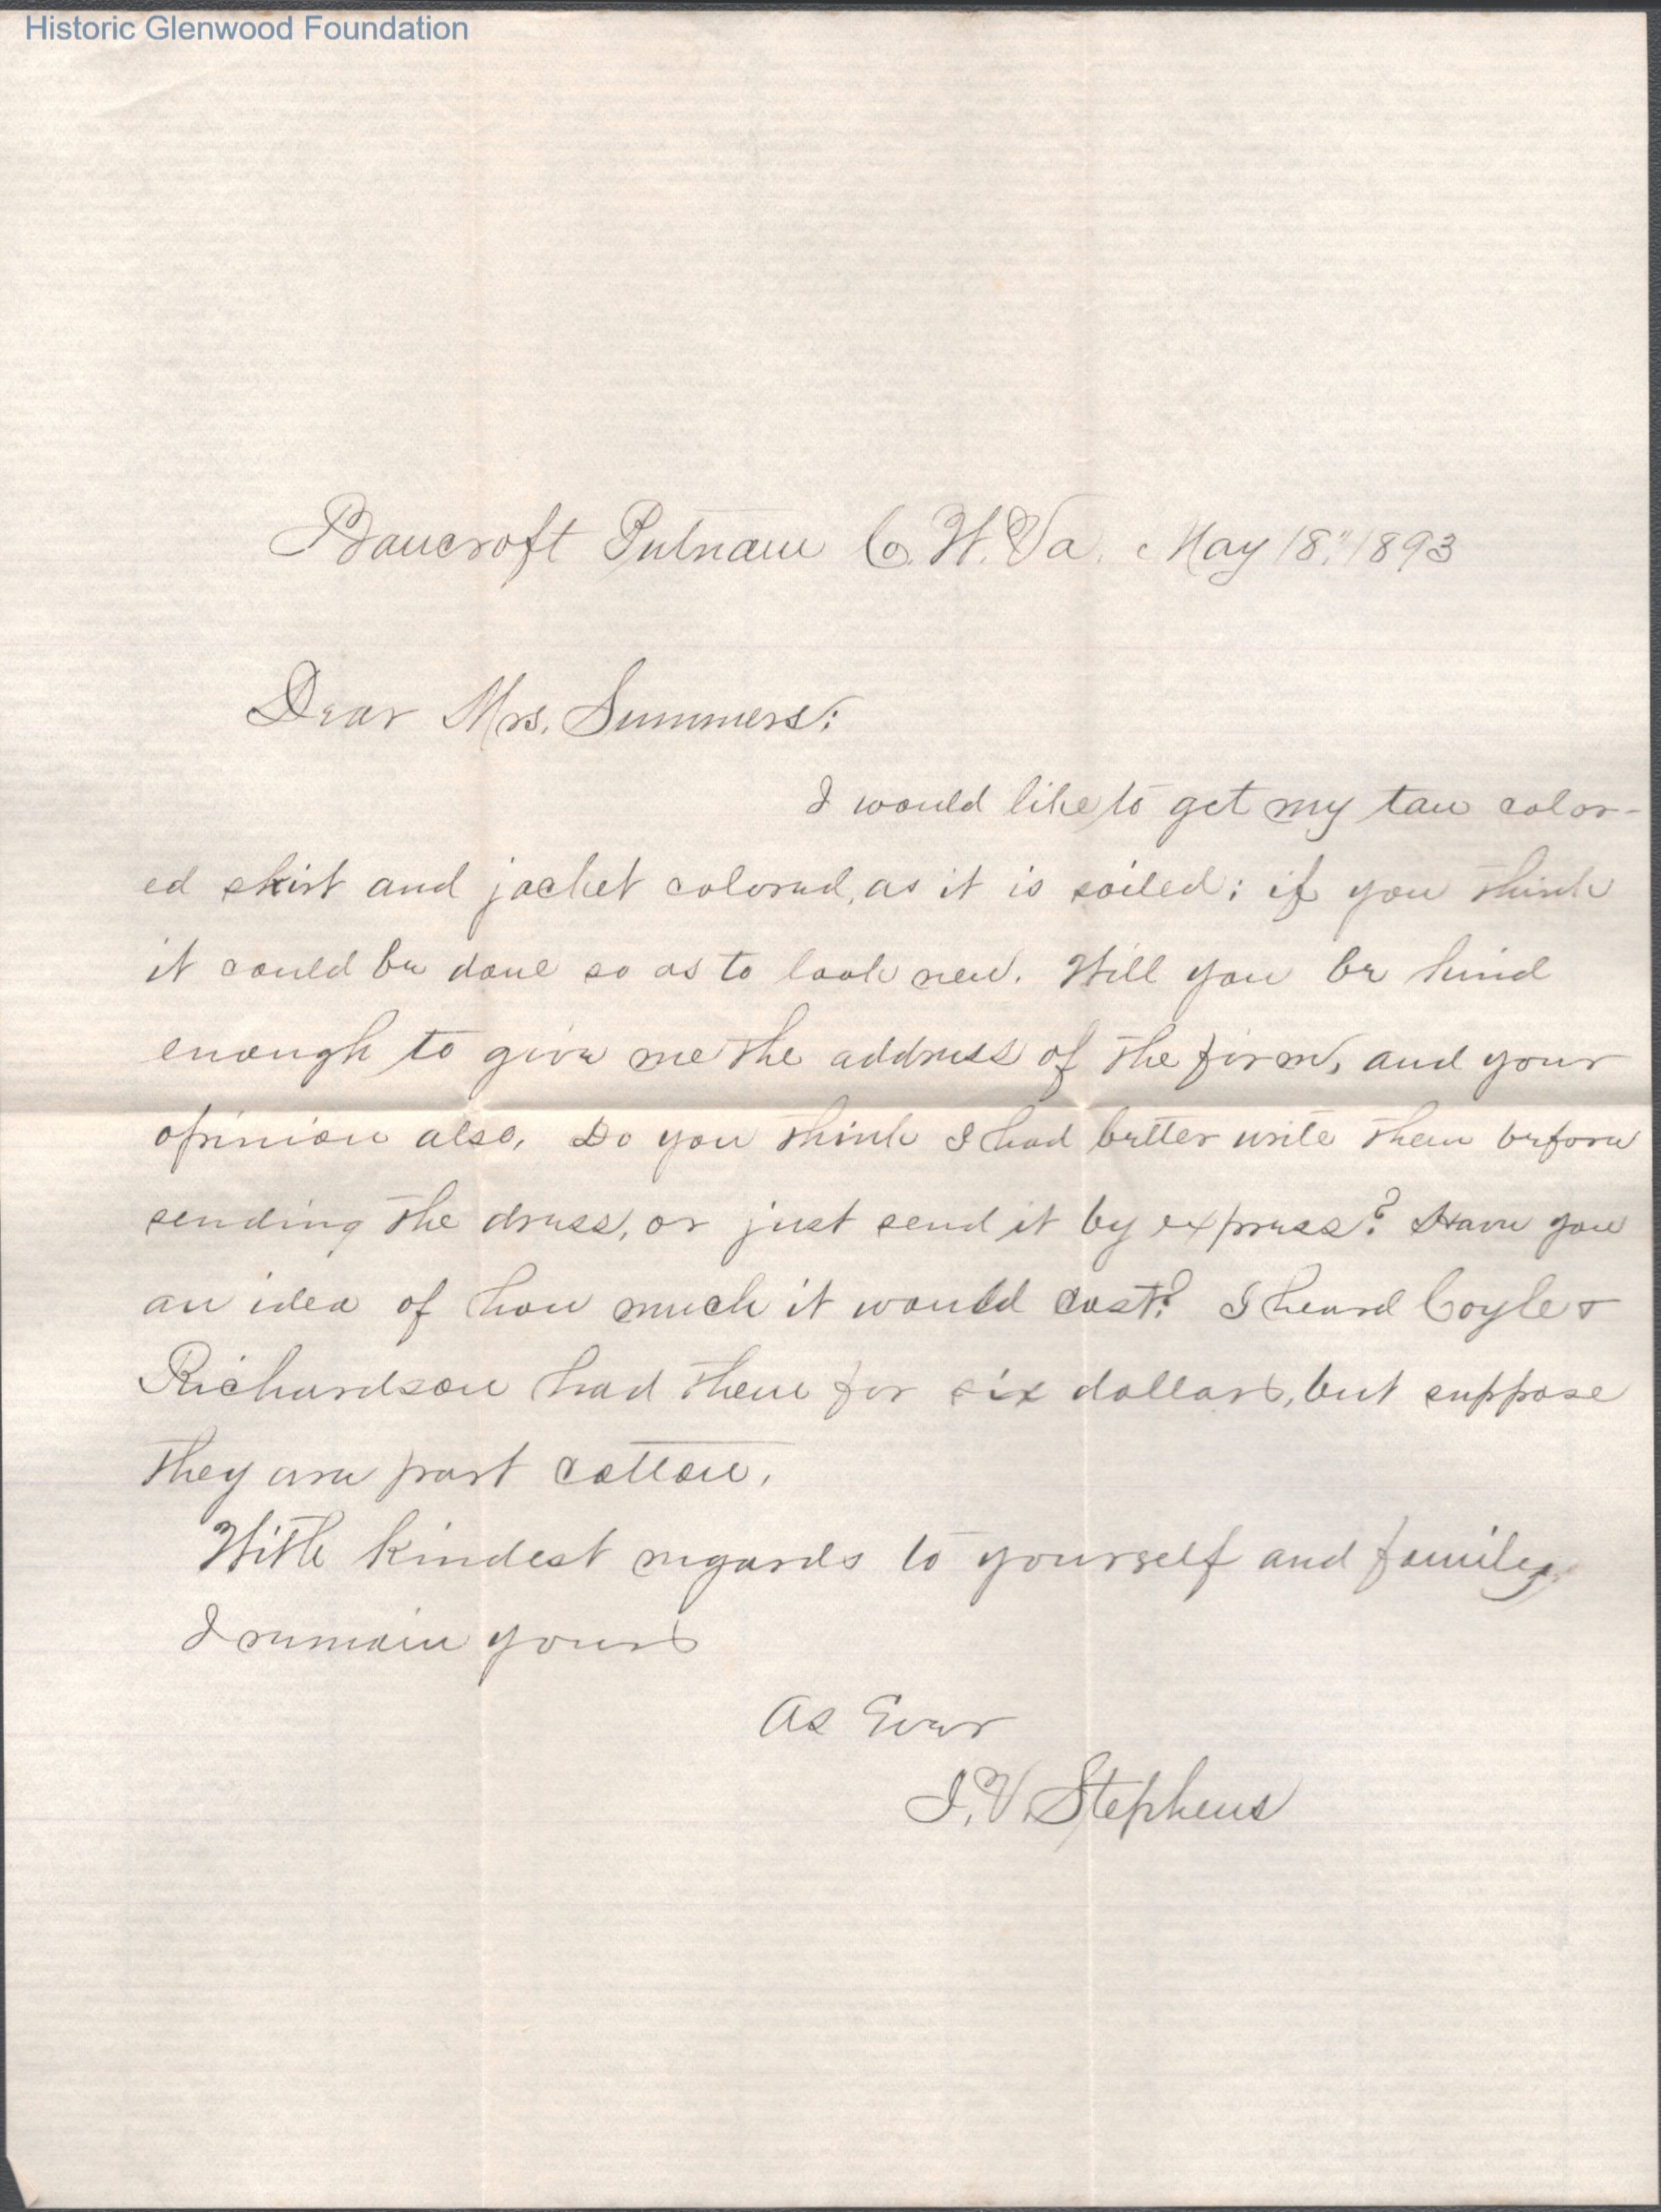 Historic Glenwood Foundation
Bancroft Putnam Co. W. Va. May 18." 1893
Dear Mrs. Summers:
I would like to get my tan color-
ed skirt and jacket colored, as it is soiled; if you think
it could be done so as to look new. Will you be kind
enough to give me the address of the firm, and your
opinion also, Do you think I had better write them before
sending the dress, or just send it by express? Have you
an idea of how much it would cost? I heard Coyle &
Richardson had them for six dollars, but suppose
they are part cotton.
With kindest regards to yourself and family
I remain yours
As Ever
I. V. Stephens